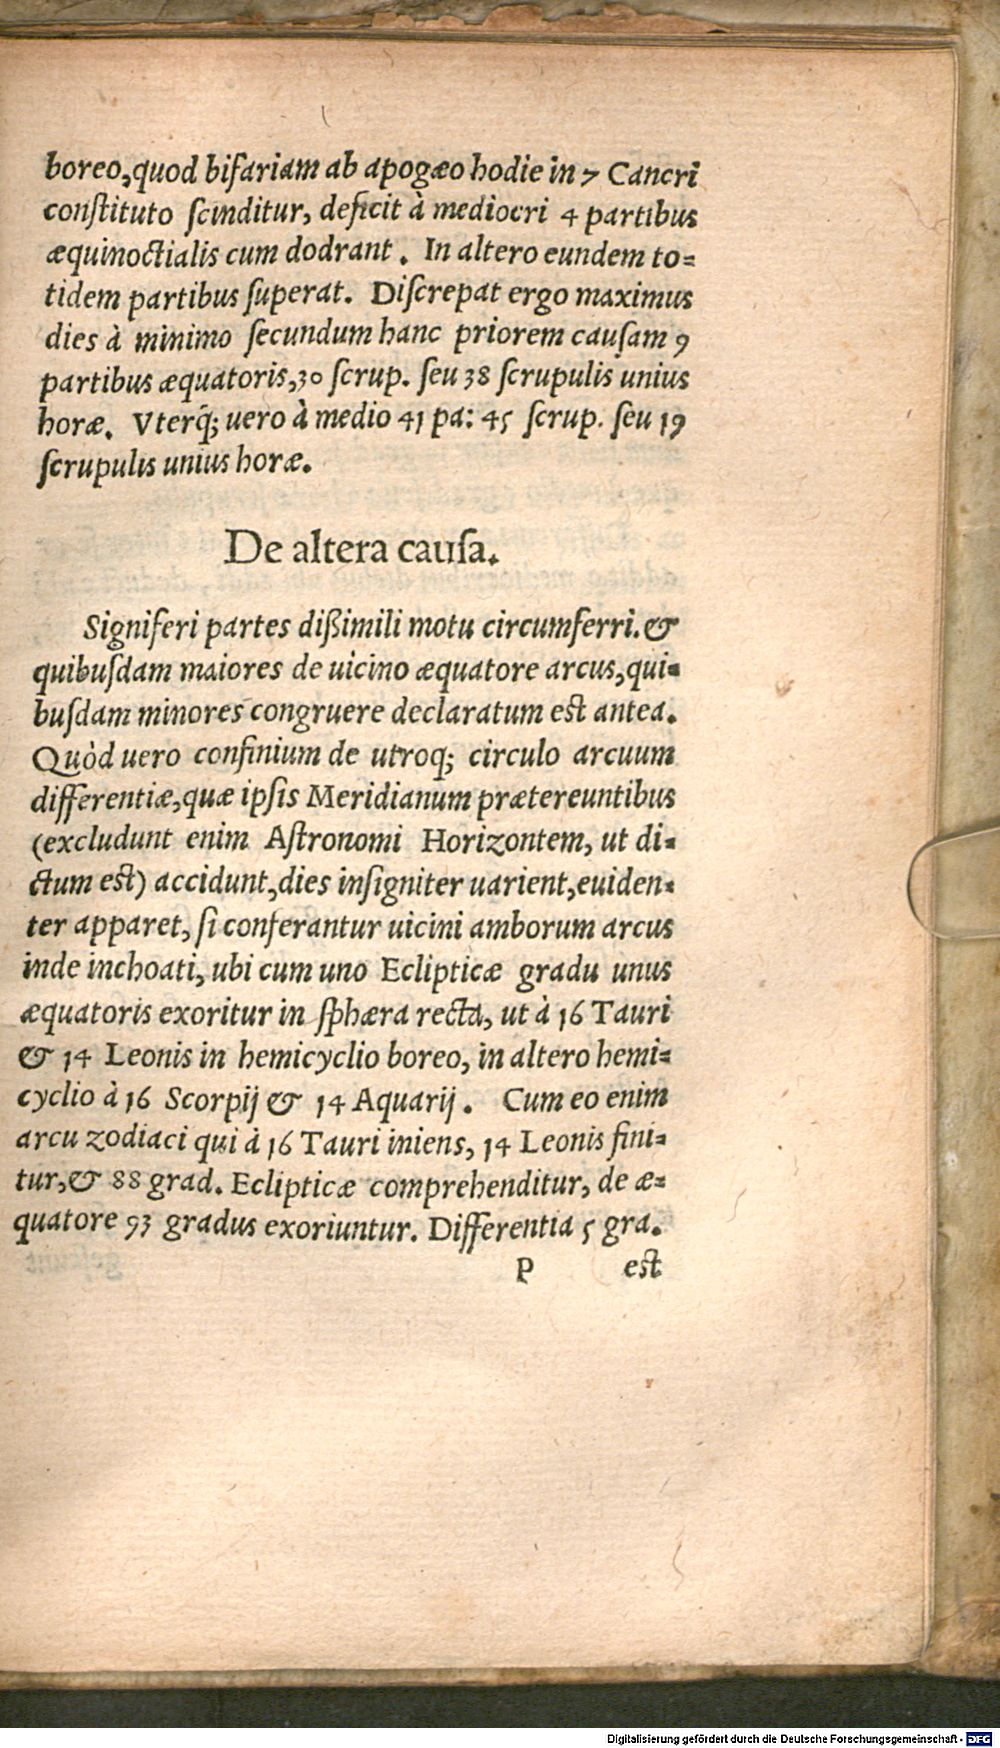 boreo, quod bifariam ab apogæo hodie in 7 Cancri
constituto ſcinditur, deficit à mediocri 4 partibus
æquinoctialis cum dodrant. In altero eundem to=
tidem partibus ſuperat. Diſcrepat ergo maximus
dies à minimo ſecundum hanc priorem cauſam 9
partibus æquatoris, 30 ſcrup. ſeu 38 ſcrupulis unius
horæ. Vterq; uero à medio 41 pa: 45 ſcrup. ſeu 19
ſcrupulis unius horæ.
De altera cauſa.
Signiferi partes dißimili motu circumferri. &
quibuſdam maiores de uicino æquatore arcus, qui=
buſdam minores congruere declaratum est antea.
Quòd uero confinium de utroq; circulo arcuum
differentiæ, quæ ipſis Meridianum prætereuntibus
(excludunt enim Aſtronomi Horizontem, ut di=
ctum est) accidunt, dies inſigniter uarient, euiden=
ter apparet, ſi conferantur uicini amborum arcus
inde inchoati, ubi cum uno Eclipticæ gradu unus
æquatoris exoritur in ſphæra recta, ut à 16 Tauri
& 14 Leonis in hemicyclio boreo, in altero hemi=
cyclio à 16 Scorpij & 14 Aquarij. Cum eo enim
arcu zodiaci qui à 16 Tauri iniens, 14 Leonis fini=
tur, & 88 grad. Eclipticæ comprehenditur, de æ=
quatore 93 gradus exoriuntur. Differentia 5 gra.
P est
Digitalisierung gefördert durch die Deutsche Forschungsgemeinschaft - DFG